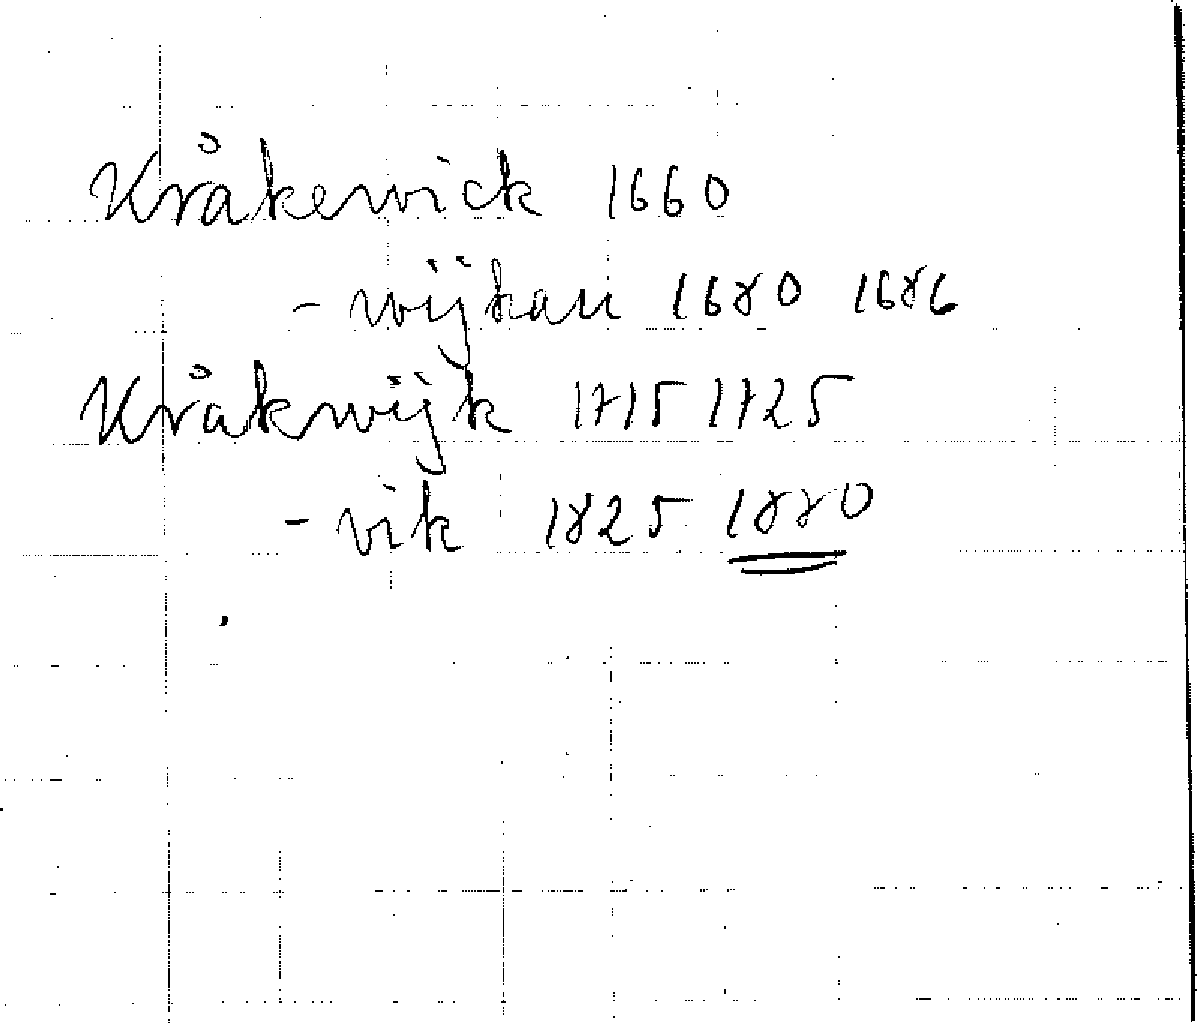 Kråkewick 1660
- wijkan 1680 1686
Kråkwijk 1715 1725
- vik 1825 1880